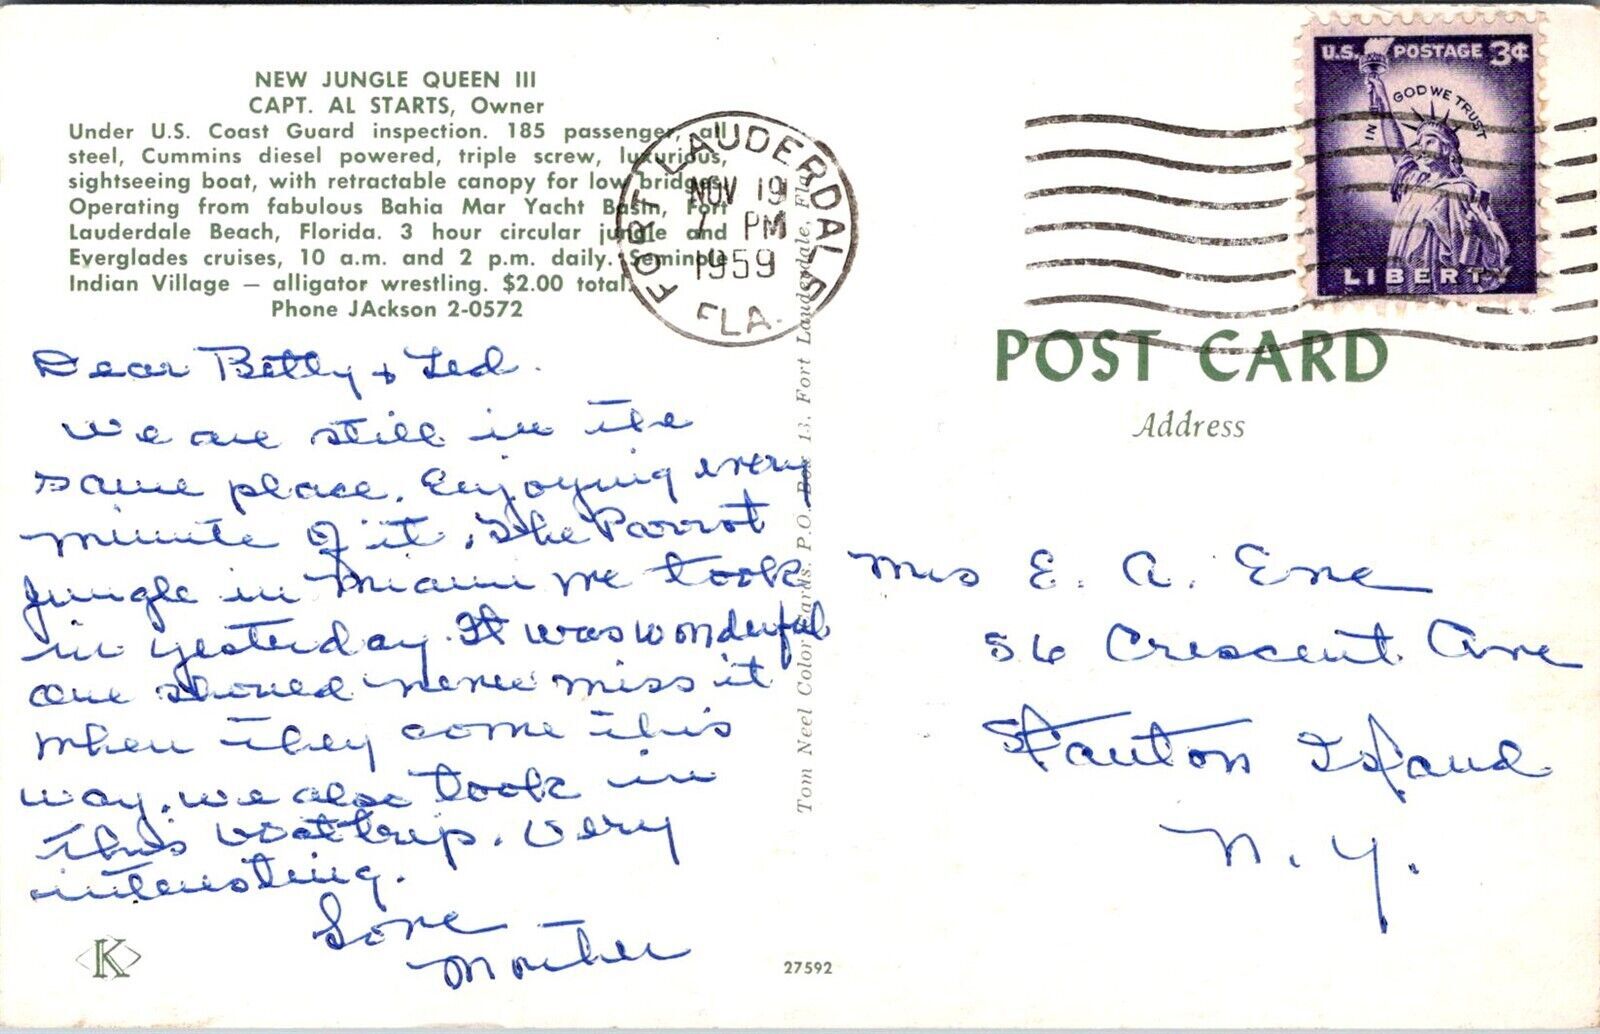 NEW JUNGLE QUEEN III
CAPT. AL STARTS, Owner
Under U.S. Coast Guard inspection. 185 passenger, all
steel, Cummins diesel powered, triple screw, luxurious,
sightseeing boat, with retractable canopy for low bridges.
Operating from fabulous Bahia Mar Yacht Basin, Fort
Lauderdale Beach, Florida. 3 hour circular jungle and
Everglades cruises, 10 a.m. and 2 p.m. daily. Seminole
Indian Village — alligator wrestling. $2.00 total.
Phone JAckson 2-0572
Dear Betty & Ted.
We are still in the
same place. Enjoying every
minute of it. The Parrot
Jungle in Miami we took
in yesterday. It was wonderful
one should never miss it
when they come this
way. We also took in
this boat trip. Very
interesting.
Love
Mother
K
27592
Tom Neel Color Cards, P.O. Box 13, Fort Lauderdale, Fla.
FORT LAUDERDALE
NOV 19
PM
1959
FLA.
U.S. POSTAGE 3¢
IN GOD WE TRUST
LIBERTY
POST CARD
Address
Mrs E. A. Ene
56 Crescent Ave
Stanton Island
N. Y.